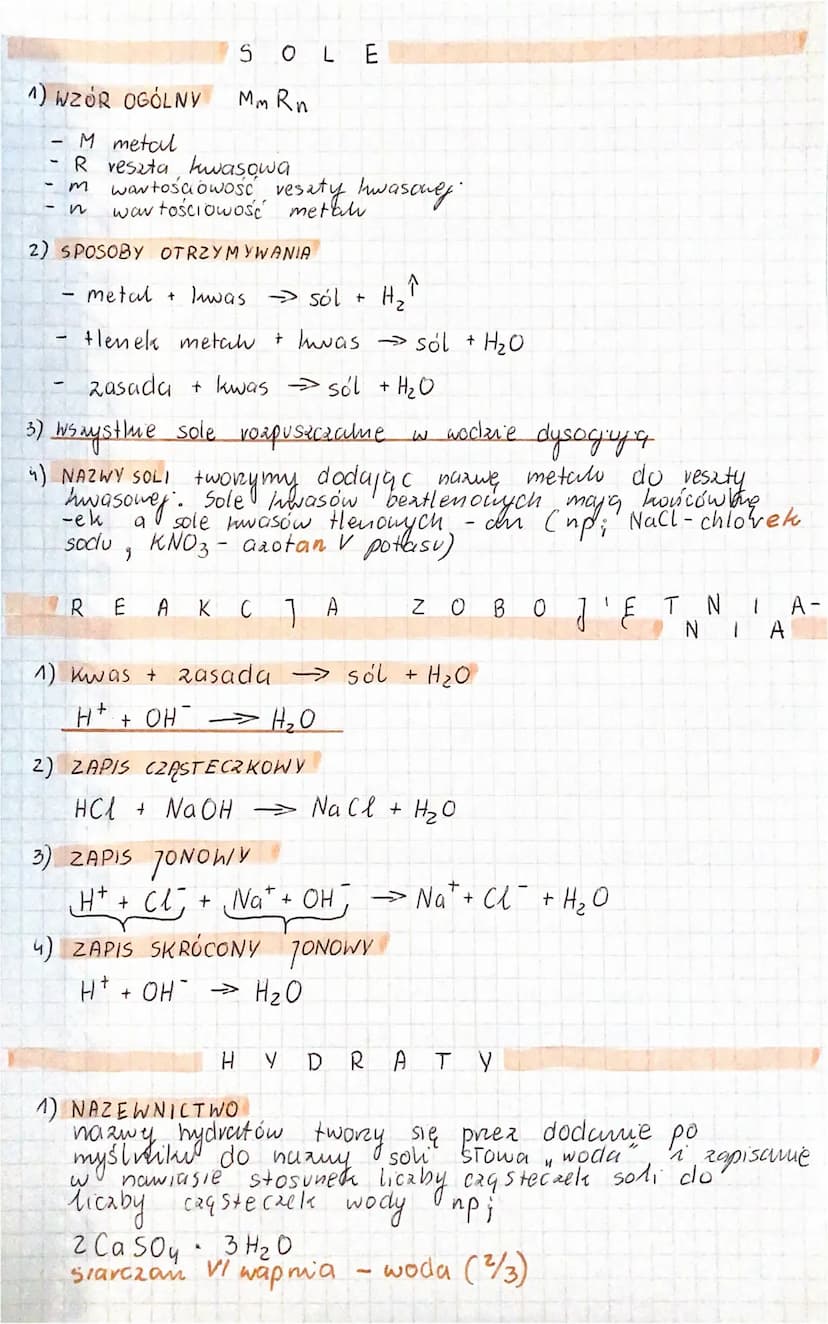 SOLE
1) WZÓR OGÓLNY MmRn
- M metal
- R reszta kwasowa
- m wartościowość reszty kwasowej
- n wartościowość metalu
2) SPOSOBY OTRZYMYWANIA
- metal + kwas → sól + H₂↑
- tlenek metalu + kwas → sól + H₂O
- zasada + kwas → sól + H₂O
3) Wszystkie sole rozpuszczalne w wodzie dysogują
4) NAZWY SOLI tworzymy dodając nazwę metalu do reszty
kwasowej. Sole kwasów beztlenowych mają końcówkę
-ek a sole kwasów tlenowych - an (np; NaCl - chlorek
sodu, KNO₃ - azotan V potasu)
REAKCJA ZOBOJĘTNIA-
NIA
1) Kwas + zasada → sól + H₂O
H⁺ + OH⁻ → H₂O
2) ZAPIS CZĄSTECZKOWY
HCl + NaOH → NaCl + H₂O
3) ZAPIS JONOWY
H⁺ + Cl⁻ + Na⁺ + OH⁻ → Na⁺ + Cl⁻ + H₂O
4) ZAPIS SKRÓCONY JONOWY
H⁺ + OH⁻ → H₂O
HYDRATY
1) NAZEWNICTWO
nazwy hydratów tworzy się przez dodanie po
myślniku do nazwy soli słowa „woda" i zapisanie
w nawiasie stosunek liczby cząsteczek soli do
liczby cząsteczek wody np;
2CaSO₄ · 3H₂O
siarczan VI wapnia - woda (2/3)